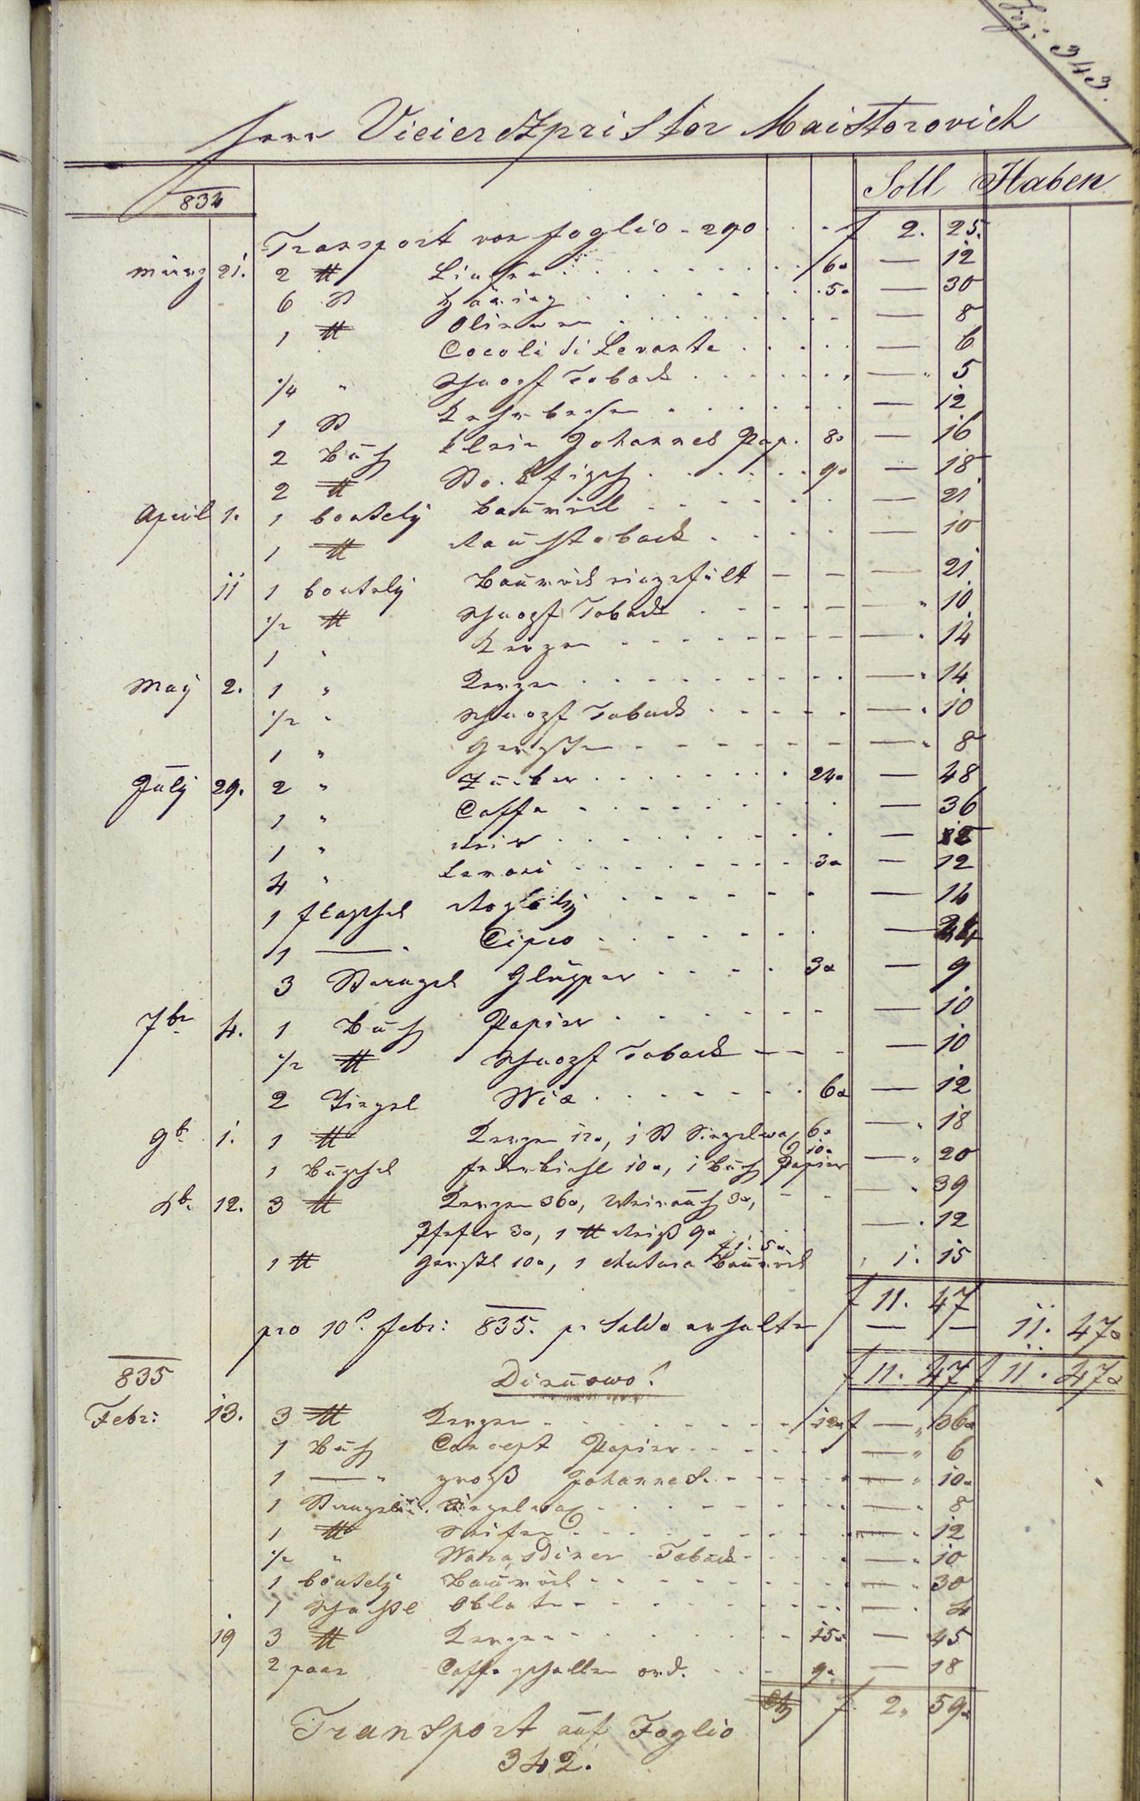 343.
Herr Vicierdzpristor Maistorovich
834 Soll Haben
Transport von foglio - 290 f 2. 25.
März 21. 2 ℔ Linsen 6 — 12
6 St Häring 5 — 30
1 ℔ Olivven — 8
Cocoli di Levante — 6
1/4 " Schnopf Toback — 5
1 St — 12
2 Buch klein Johannes Pap. 8 — 16
2 ℔ Stockfisch 9 — 18
April 1. 1 boutely Baumöl — 21
1 ℔ Rauchtoback — 10
11 1 boutely Baumöl eingefült — 21
1/2 ℔ Schnopf Toback — 10
1 " Kerzen — 14
Maÿ 2. 1 " Kerzen — 14
1/2 " Schnopf Toback — 10
1 " Gersten — 8
Julÿ 29. 2 " Zucker 24 — 48
1 " Caffe — 36
1 " Reis —
4 " Lemoni 3 — 12
1 flaschel Rosoly — 14
1 — " Cipro —
3 Stangel 3 — 9
7br 4. 1 Buch Papier — 10
1/2 ℔ Schnopf Toback — 10
2 Tiegel Wix 6 — 12
9b. 1. 1 ℔ Kerzen 12, 1 St Siegelwax 6 — 18
1 Büschel Federkiehl 10, 1 Buch Papier 10 — 20
Xb. 12. 3 ℔ Kerzen 36, Weirauch 3, — 39
Pfefer 3, 1 ℔ Reiß 9 — 12
1 ℔ Gerstl 10, 1 Baumöl 1. 5 1. 15
f 11. 47
pro 10t. Febr: 835. pr Saldo erhalten — — 11. 47
f 11. 47 f 11. 47
835 Dinuowo!
Febr: 13. 3 ℔ Kerzen 12 f — 36
1 Buch Concept Papier — 6
1 — " groß Johannes — 10
1 Stangel Siegelwax — 8
1 ℔ Seifen — 12
1/2 " Warasdiner Toback — 10
1 boutely Baumöl — 30
1 Oblaten — 4
19 3 ℔ Kerzen 15 — 45
2 paar Caffe schallen ord. 9 — 18
f. 2. 59
Transport auf Foglio
342.